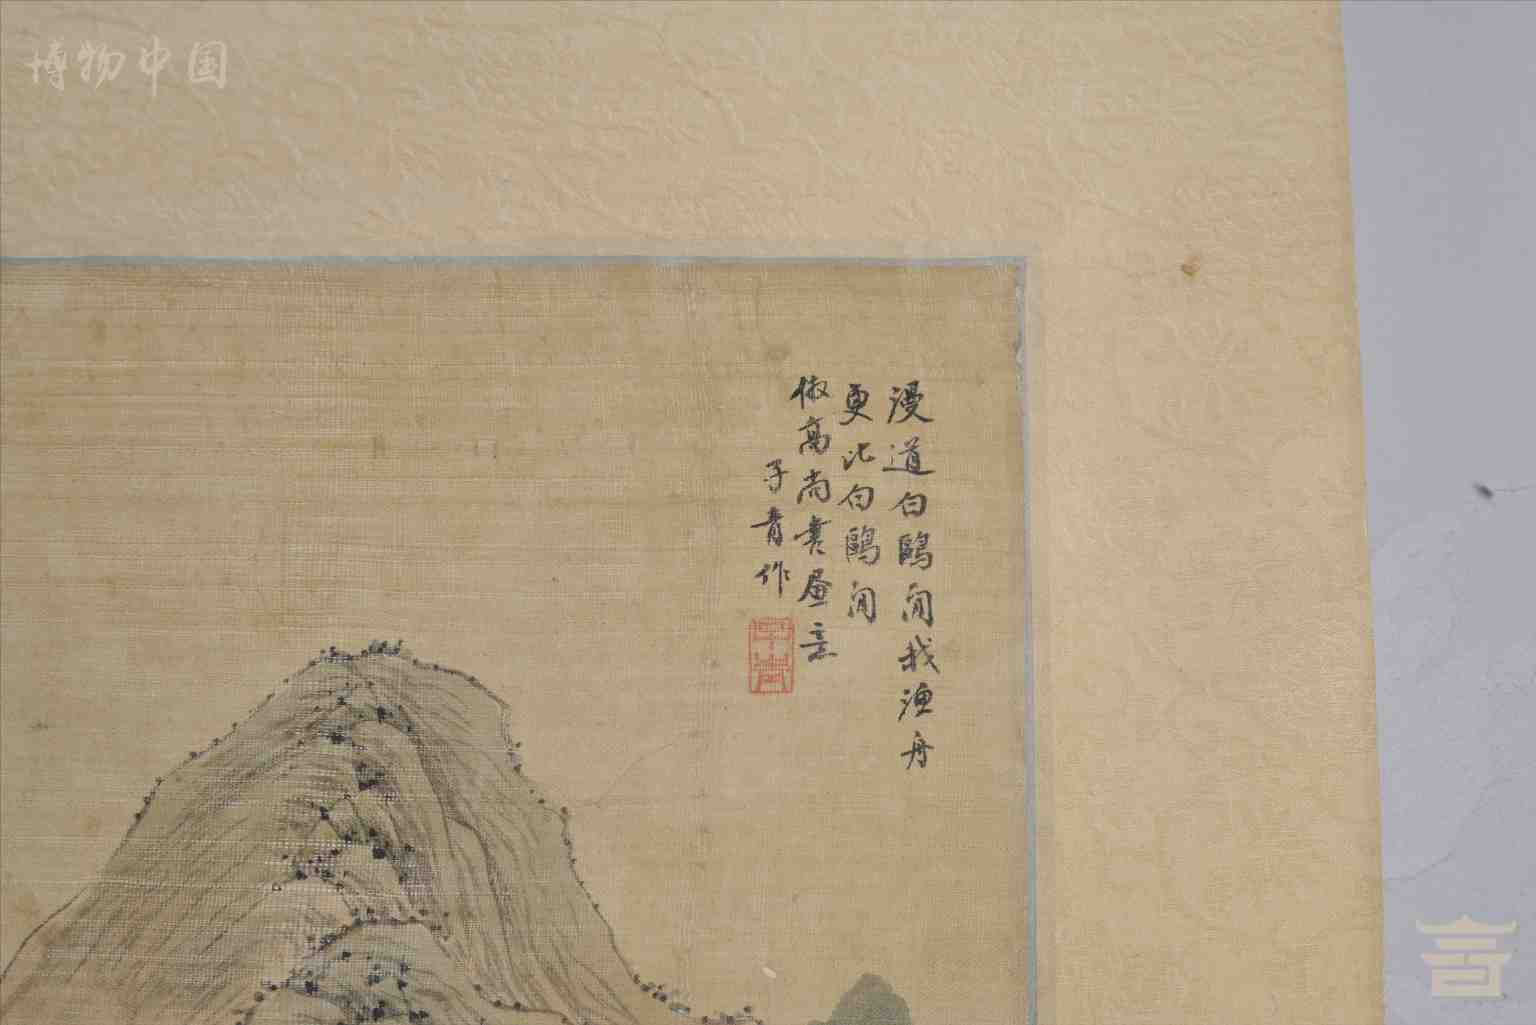 博物中国
漫道白鷗閒我漁舟
更比白鷗閒
倣高尚書㫁意
子青作
子青